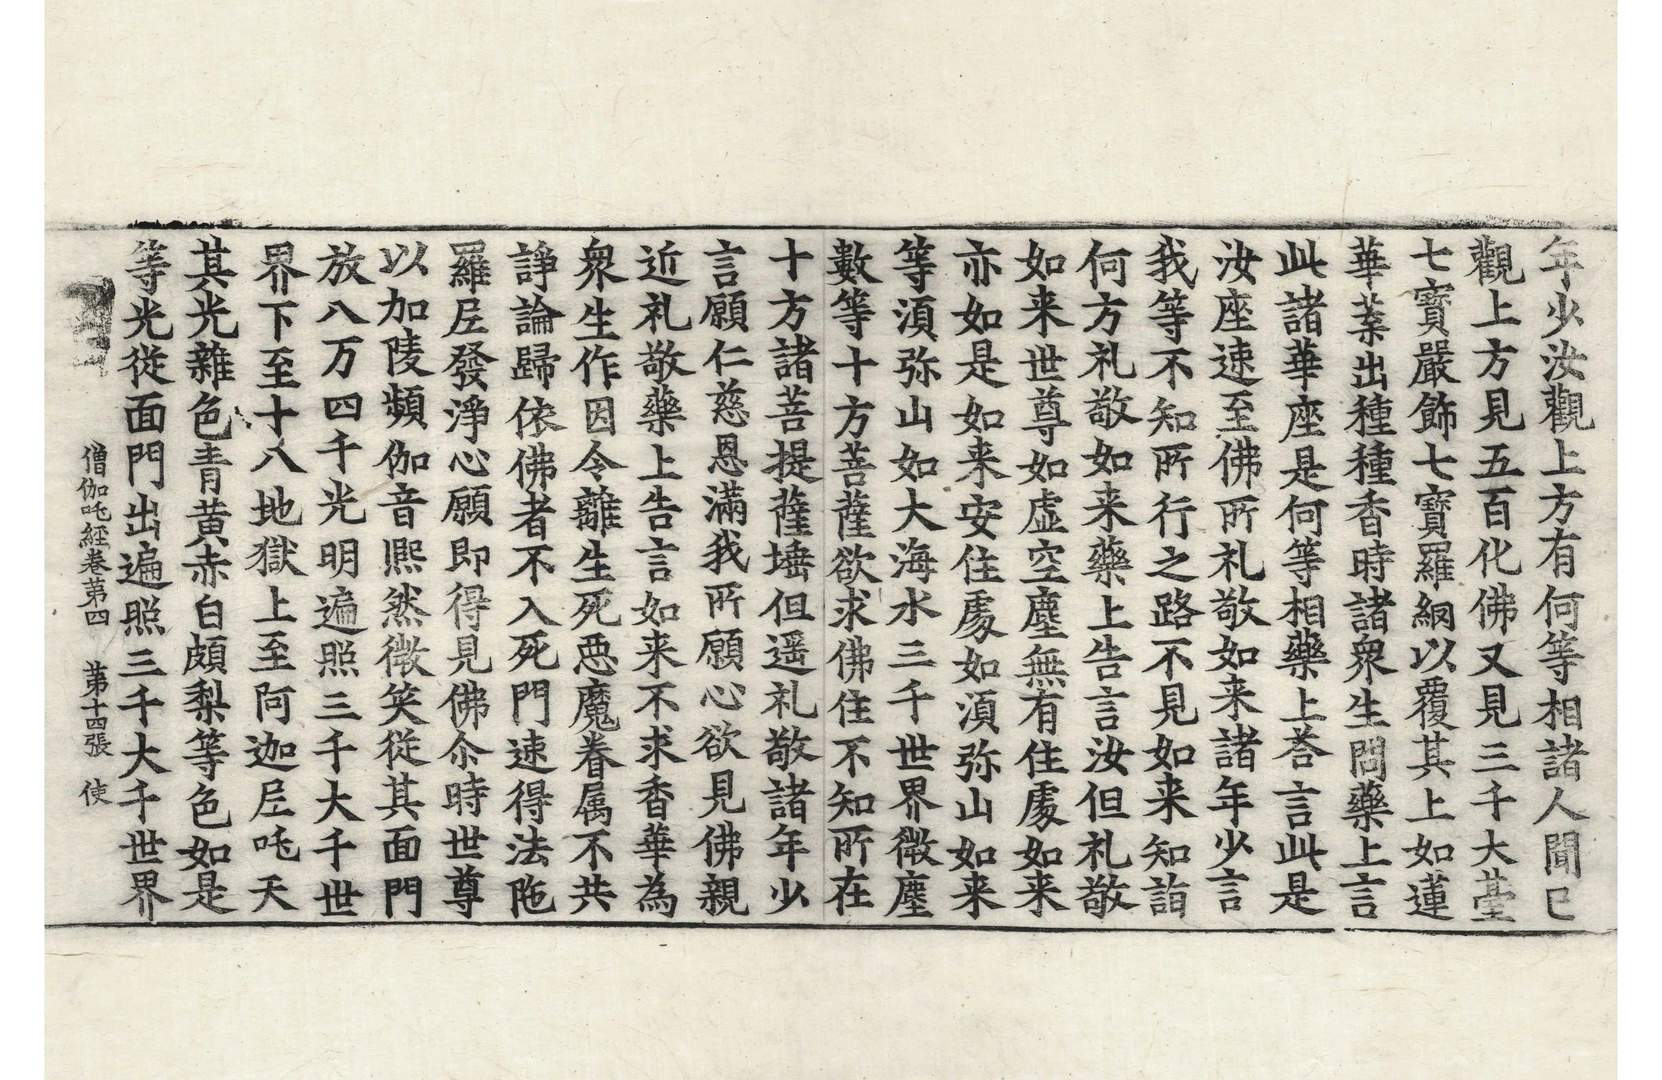 年少汝觀上方有何等相諸人聞已
觀上方見五百化佛又見三千大臺
七寶嚴飾七寶羅網以覆其上如蓮
華葉出種種香時諸衆生問藥上言
此諸華座是何等相藥上荅言此是
汝座速至佛所礼敬如来諸年少言
我等不知所行之路不見如来知詣
何方礼敬如来藥上告言汝但礼敬
如来世尊如虛空塵無有住處如来
亦如是如来安住處如湏弥山如来
等湏弥山如大海水三千世界微塵
數等十方菩薩欲求佛住不知所在
十方諸菩提薩埵但遥礼敬諸年少
言願仁慈恩滿我所願心欲見佛親
近礼敬藥上告言如来不求香華為
衆生作因令離生死惡魔眷属不共
諍論歸依佛者不入死門速得法陁
羅尼發淨心願即得見佛尒時世尊
以加陵頻伽音熙然微笑從其面門
放八万四千光明遍照三千大千世
界下至十八地獄上至阿迦尼吒天
其光雜色青黃赤白頗梨等色如是
等光從面門出遍照三千大千世界
僧伽吒經卷苐四 苐十四張 使